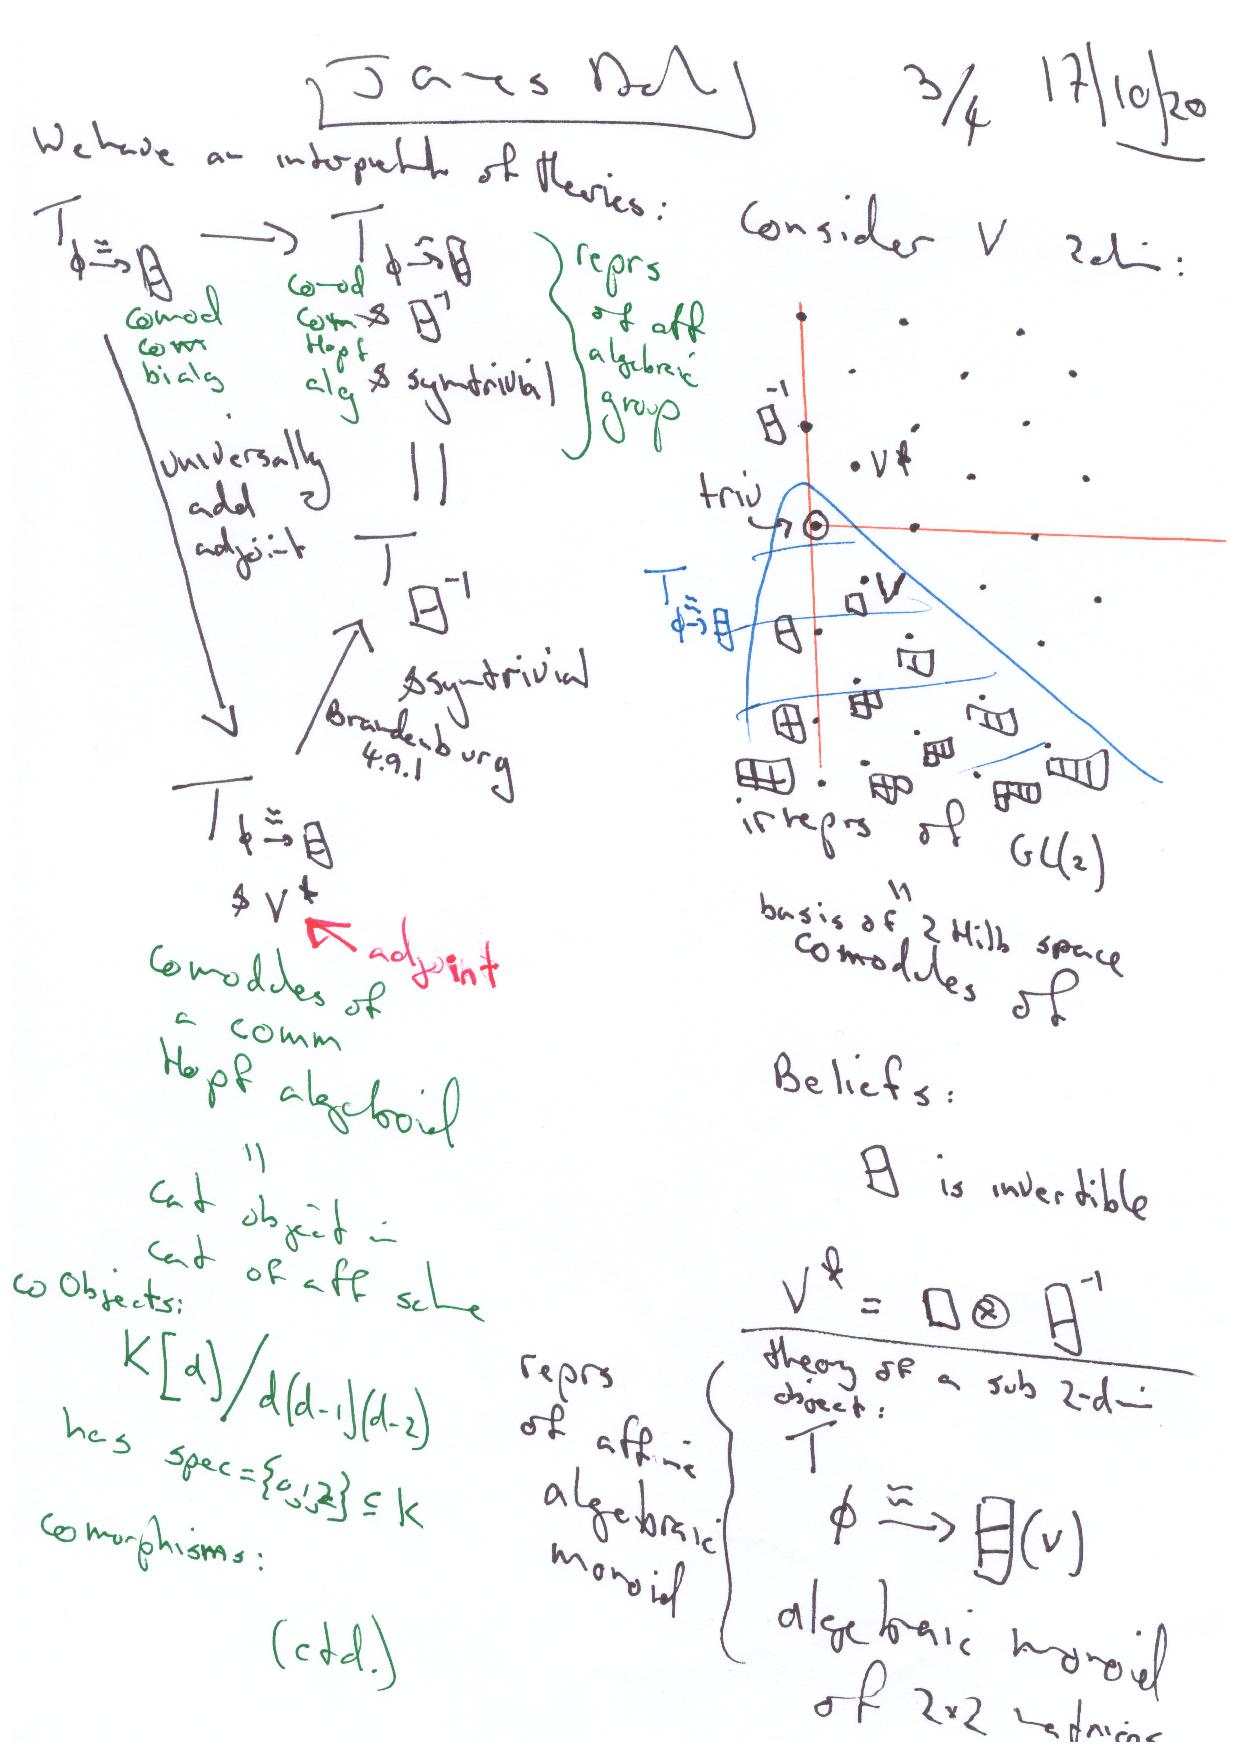 James Dol
3/4 17/10/20
We have an interpretat of theories:
T ϕ ≅→ 日 → T ϕ ≅→ 日
comod
com
bialg
comod
com
Hopf
alg
& 日⁻¹
& symtrivial
reprs
of aff
algebraic
group
universally
add
adjoint
||
T 日⁻¹
& symtrivial
Brandenburg
4.9.1
T ϕ ≅→ 日
& V*
adjoint
comodules of
a comm
Hopf algebroid
||
cat object in
cat of aff scheme
co Objects:
K[d]/d(d-1)(d-2)
has spec={0,1,2} ⊆ K
comorphisms:
(ctd.)
Consider V 2dim:
日⁻¹
V*
triv
T ϕ ≅→ 日
□ V
日
irreprs of GL(2)
||
basis of 2 Hilb space
comodules of
Beliefs:
日 is invertible
V* = □ ⊗ 日⁻¹
theory of a sub 2-dim
object:
T
ϕ ≅→ 目(V)
reprs
of affine
algebraic
monoid
algebraic monoid
of 2x2 matrices